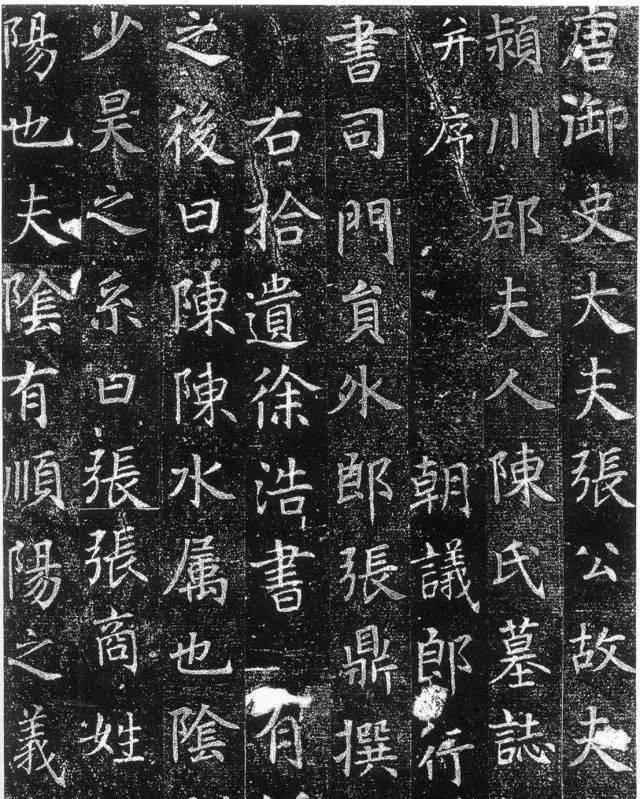 唐御史大夫張公故夫
潁川郡夫人陳氏墓誌
并序 朝議郎行
書司門員外郎張鼎撰
右拾遺徐浩書 有
之後曰陳陳水属也陰
少昊之系曰張張商姓
陽也夫陰有順陽之義